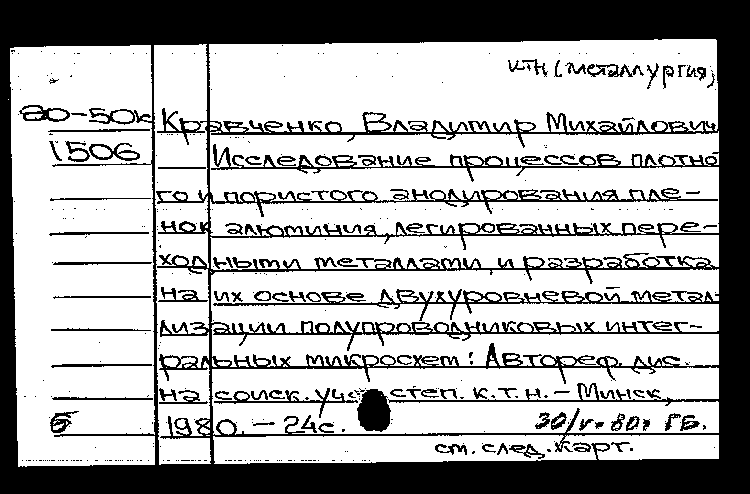 ктн (металлургия)
80-50к Кравченко, Владимир Михайлович
1506 Исследование процессов плотно
го и пористого анодирования пле-
нок алюминия, легированных пере-
ходными металлами, и разработка
на их основе двухуровневой метал-
лизации полупроводниковых интег-
ральных микросхем: Автореф. дис.
на соиск. степ. к.т.н. - Минск,
б 1980. - 24с. 30/V-80г ГБ.
см. след. карт.